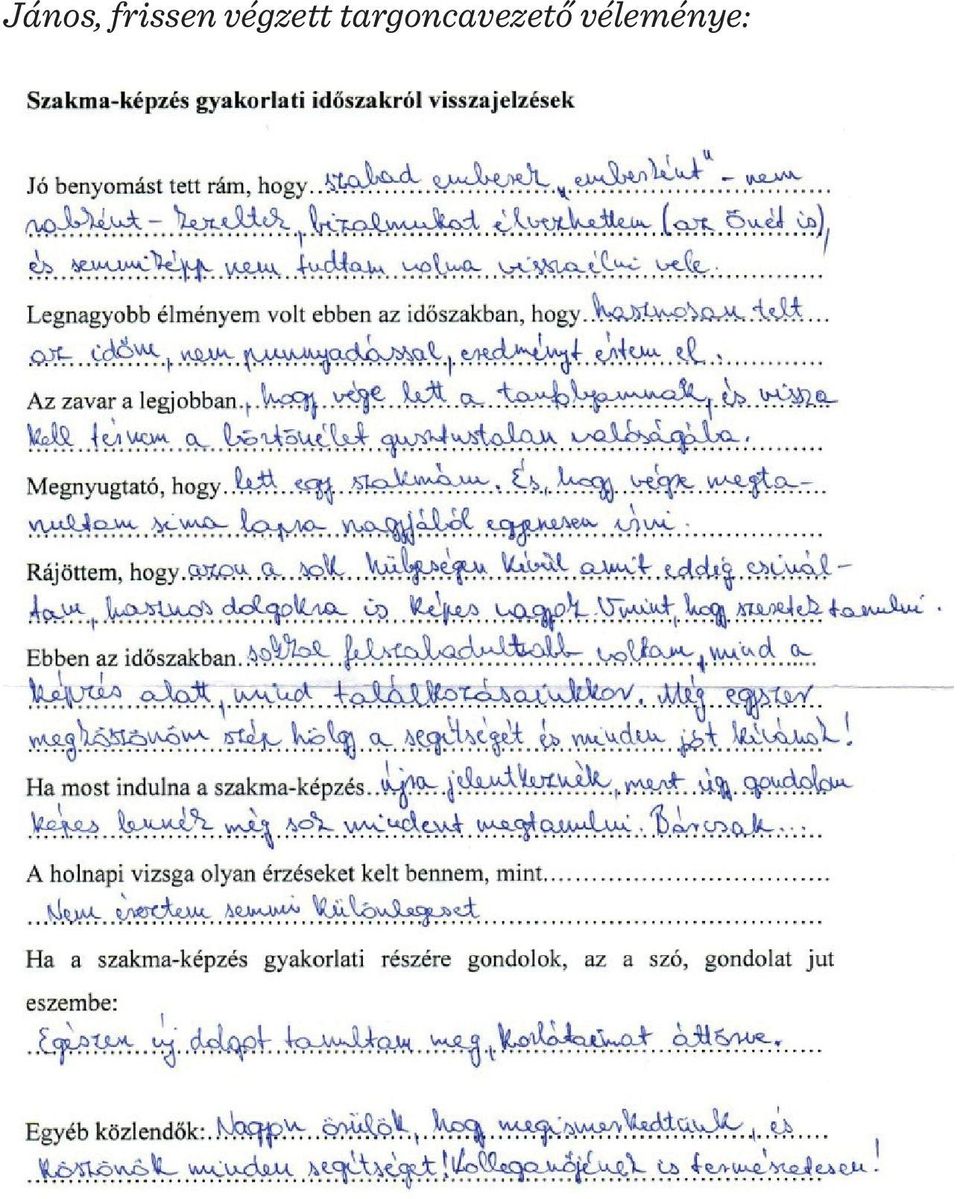 János, frissen végzett targoncavezető véleménye:
Szakma-képzés gyakorlati időszakról visszajelzések
Jó benyomást tett rám, hogy..szabad emberek „emberként" – nem
rabként – kezeltek, bizalmukat élvezhettem (az Önét is),
és semmiképp nem tudtam volna visszaélni vele.
Legnagyobb élményem volt ebben az időszakban, hogy..hasznosan telt
az időm, nem punnyadással, eredményt értem el.
Az zavar a legjobban.., hogy vége lett a tanfolyamnak, és vissza
kell térnem a börtönélet gusztustalan valóságába.
Megnyugtató, hogy..lett egy szakmám. És, hogy végre megta-
nultam sima lapra nagyjából egyenesen írni.
Rájöttem, hogy.azon a sok hülyeségen kívül amit eddig csinál-
tam, hasznos dolgokra is képes vagyok. Vmint, hogy szeretek tanulni.
Ebben az időszakban..sokkal felszabadultabb voltam, mind a
képzés alatt, mind találkozásainkkor. Még egyszer
megköszönöm szép hölgy a segítségét és minden jót kívánok!
Ha most indulna a szakma-képzés..újra jelentkeznék, mert úgy gondolom
képes lennék még sok mindent megtanulni. Bárcsak....
A holnapi vizsga olyan érzéseket kelt bennem, mint....
Nem éreztem semmi különlegeset
Ha a szakma-képzés gyakorlati részére gondolok, az a szó, gondolat jut
eszembe:
Egészen új dolgot tanultam meg, korlátaimat áttörve.
Egyéb közlendők:..Nagyon örülök, hogy megismerkedtünk, és
köszönök minden segítséget! Kolleganőjének is természetesen!